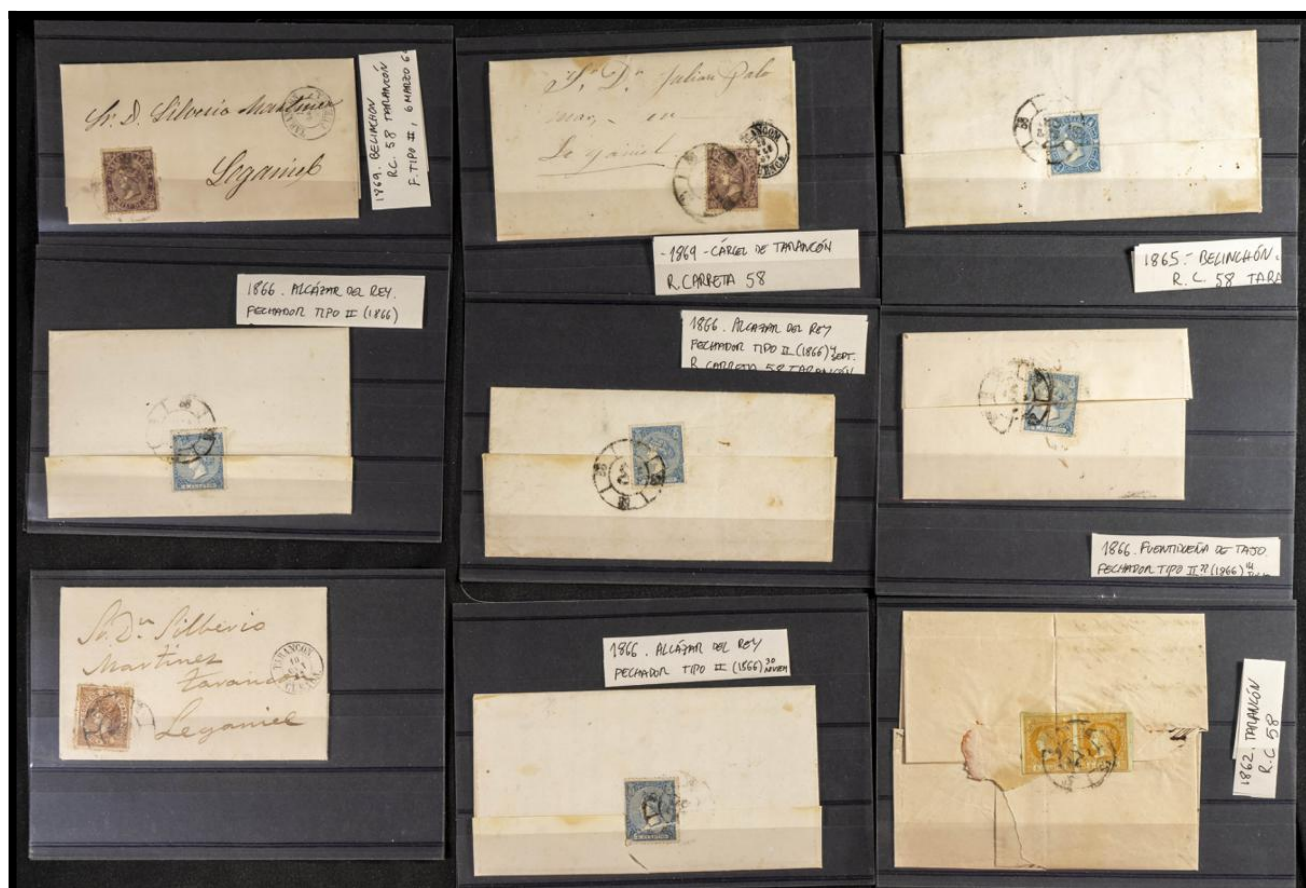 Sr. D. Silverio Martinez
Leganiel
1869. BELINCHÓN
R.C. 58 TARANCÓN
F. TIPO II, 6 MARZO 6
Sr. Dn. Julian Palo
mar, en
Leganiel
TARANCON
CUENCA
-1869- CÁRCEL DE TARANCÓN
R. CARRETA 58
58
1865.- BELINCHÓN.
R. C. 58 TARA
1866. ALCÁZAR DEL REY.
FECHADOR TIPO II (1866)
58
1866. ALCAZAR DEL REY
FECHADOR TIPO II (1866) 4 SEPT.
R. CARRETA 58 TARANCÓN
58
1866. FUENTIDUEÑA DE TAJO
FECHADOR TIPO II (1866)
Sr. Dn. Silberio
Martinez
Tarancon
Leganiel
TARANCON
10
CUENCA
1866. ALCÁZAR DEL REY
FECHADOR TIPO II (1866) 30 NOVIEM
1862. TARANCÓN
R.C. 58